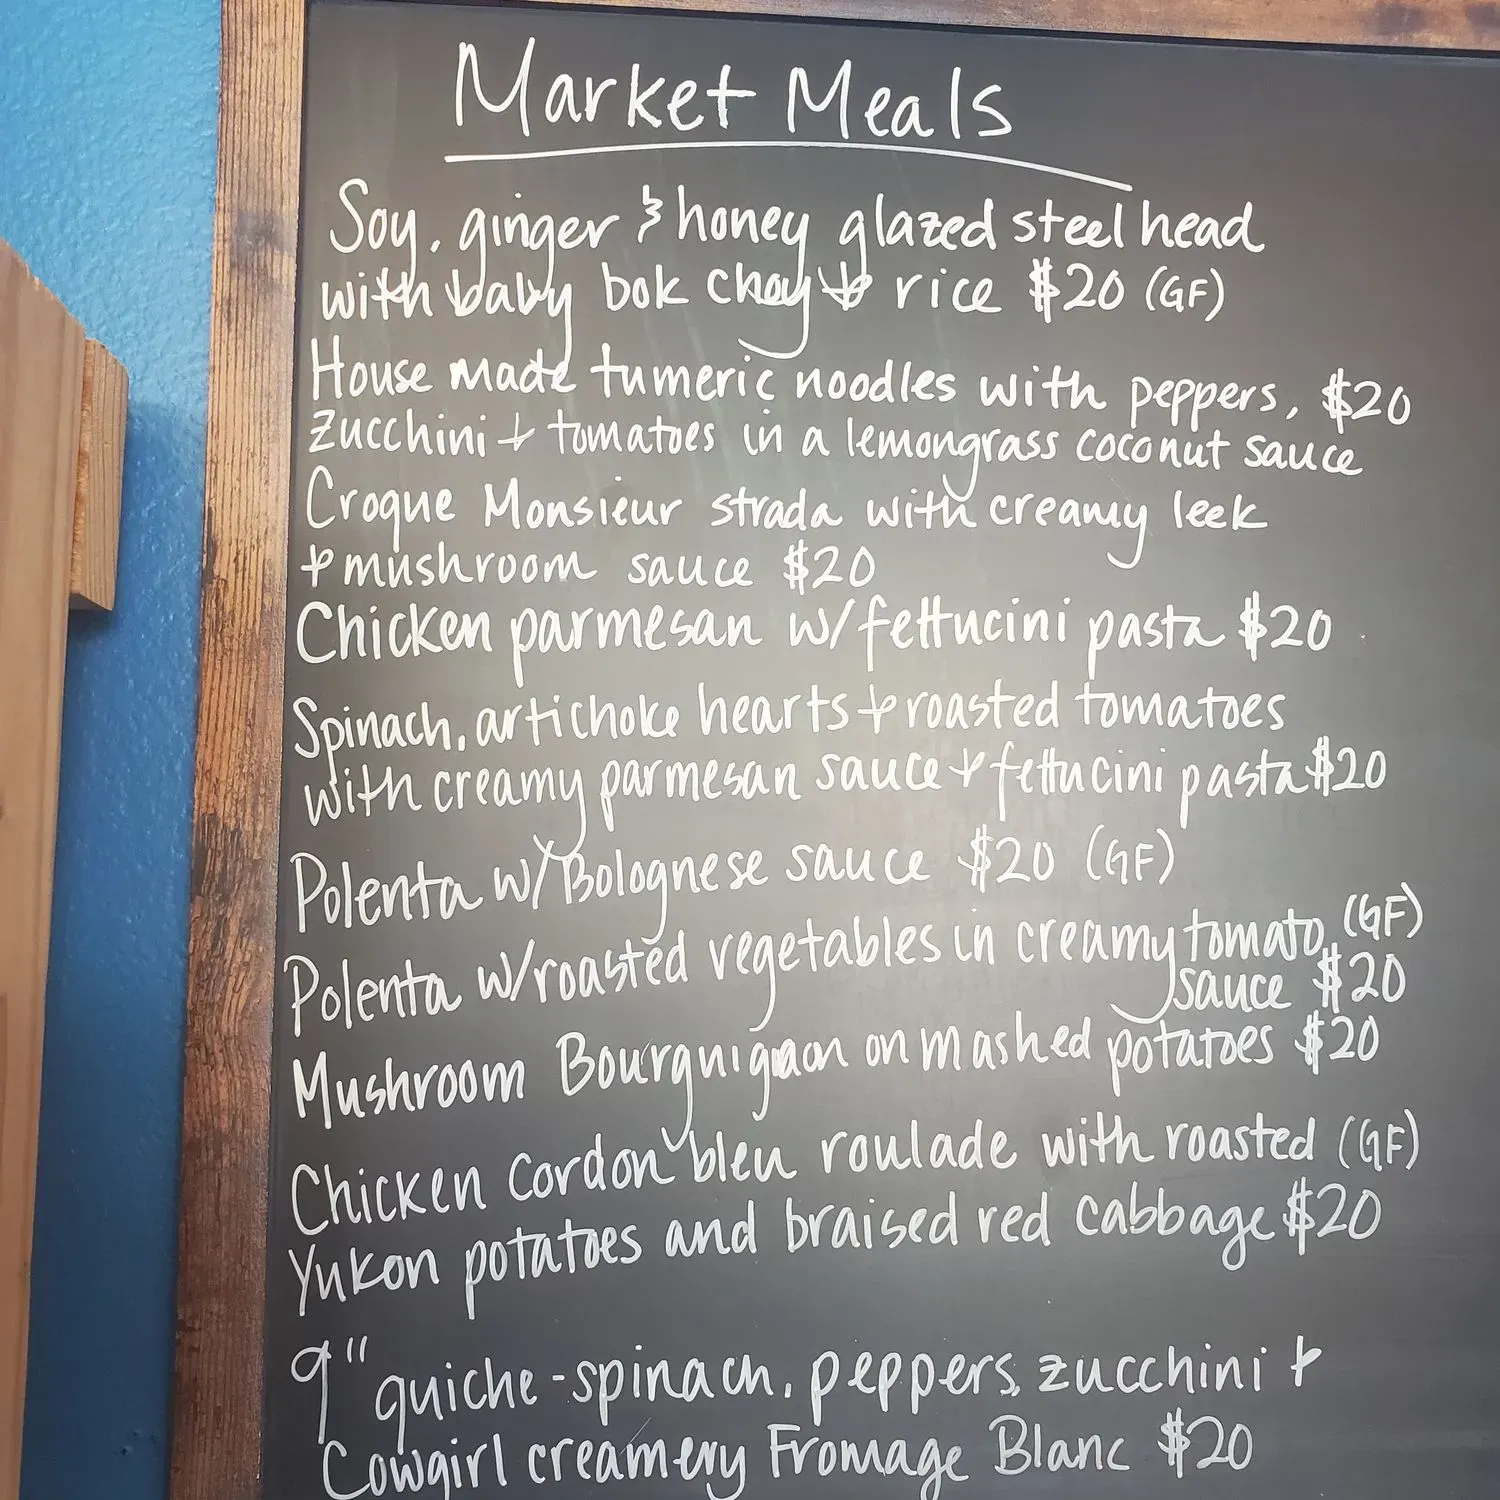 Market Meals
Soy, ginger & honey glazed steelhead
with baby bok choy & rice $20 (GF)
House made tumeric noodles with peppers, $20
zucchini + tomatoes in a lemongrass coconut sauce
Croque Monsieur strada with creamy leek
+ mushroom sauce $20
Chicken parmesan w/fettucini pasta $20
Spinach, artichoke hearts + roasted tomatoes
with creamy parmesan sauce + fettucini pasta $20
Polenta w/Bolognese sauce $20 (GF)
Polenta w/roasted vegetables in creamy tomato (GF)
sauce $20
Mushroom Bourguignon on mashed potatoes $20
Chicken Cordon bleu roulade with roasted (GF)
Yukon potatoes and braised red cabbage $20
9" quiche - spinach, peppers, zucchini +
Cowgirl creamery Fromage Blanc $20